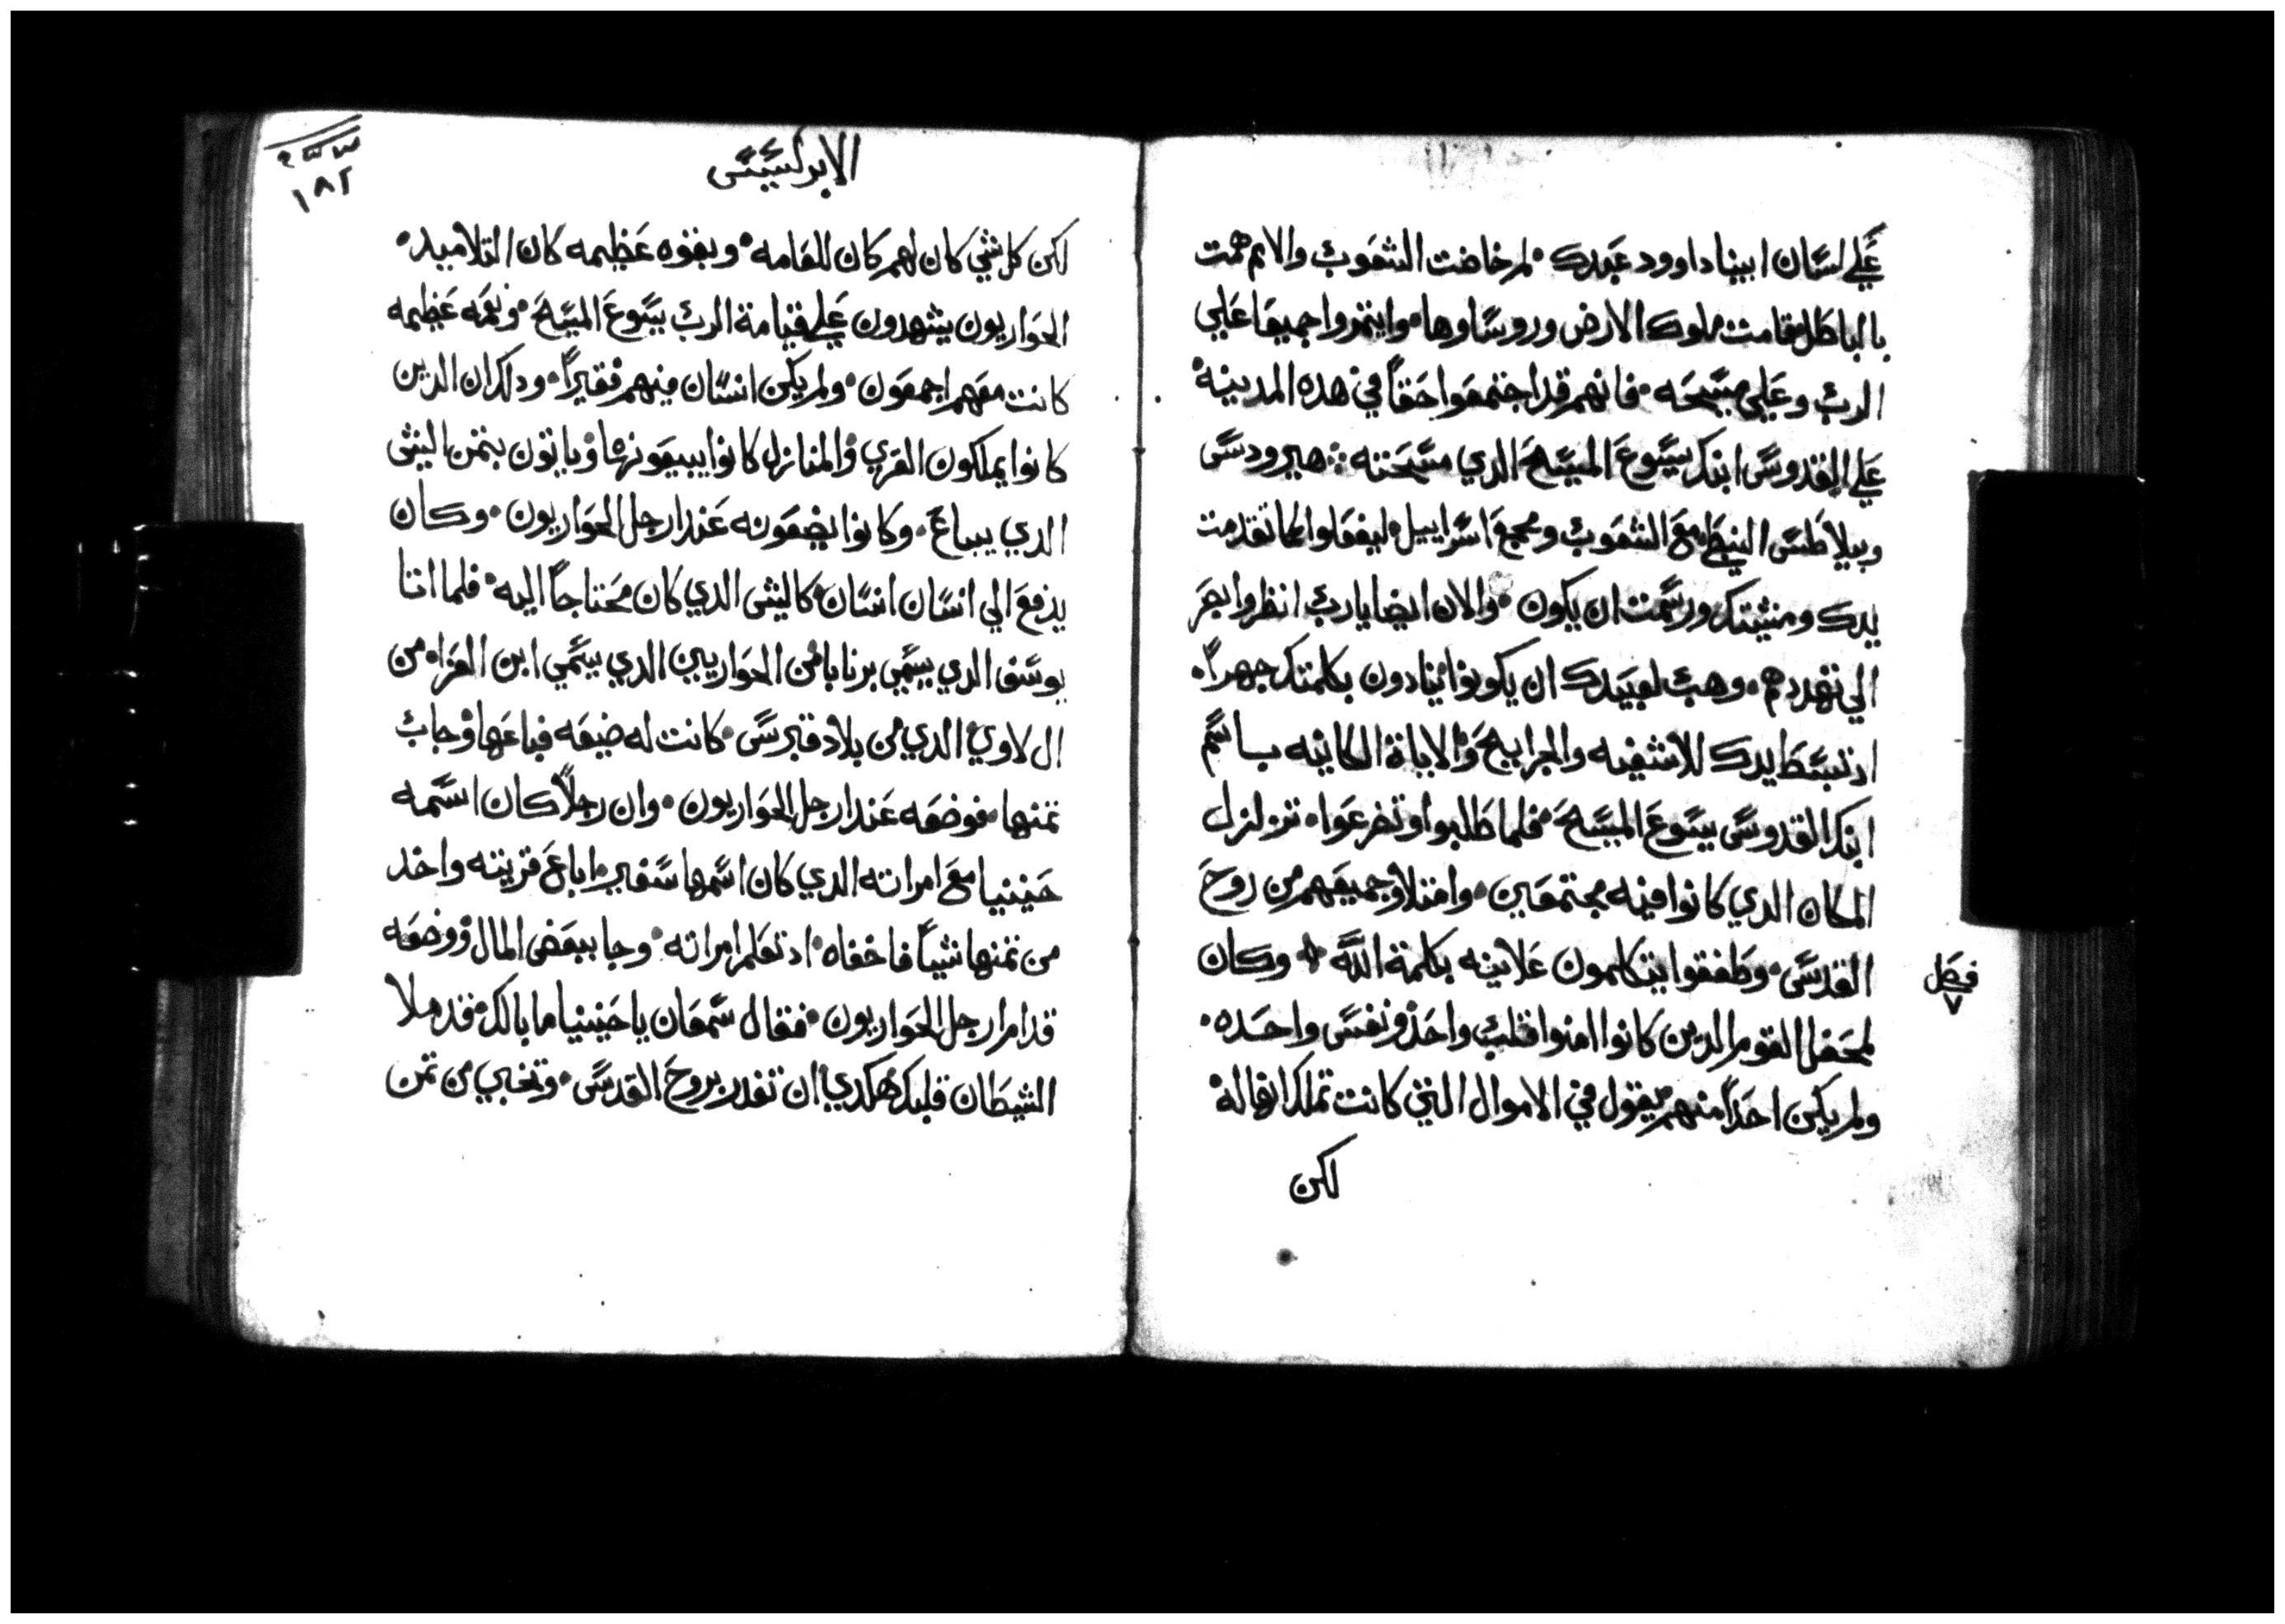 علي لسان ابينا داوود عبدك • لم خاضت الشعوب والامم همت
بالباطل • قامت ملوك الارض وروساوها • وايتمروا جميعا علي
الرب وعلي مسيحه • فانهم قد اجتمعوا حقاً في هده المدينة
علي القدوس ابنك يسوع المسيح الدي مسحته : هيرودس
وبيلاطس النبطي مع الشعوب ومجمع اسراييل • ليفعلوا كلما تقدمت
يدك ومشيتك ورسمت ان يكون • والان ايضا يا رب انظر وابصر
الي تهددهم • وهب لعبيدك ان يكونوا ينادون بكلمتك جهراً •
اد تبسط يدك للاشفيه والجرايح والاياة الكاينه باسم
ابنك القدوس يسوع المسيح • فلما طلبوا وتضرعوا • تزلزل
المكان الدي كانوا فيه مجتمعين • وامتلاو جميعهم من روح
القدس • وطفقوا يتكلمون علانيه بكلمة الله • وكان
فصل ٧
لمحفل القوم الدين كانوا امنوا قلب واحد ونفس واحده •
ولم يكن احداً منهم يقول في الاموال التي كانت تملك انها له
لكن
١٨٢
الابركسيس
لكن كل شي كان لهم كان للعامه • وبقوه عظيمه كان التلاميد •
الحواريون يشهدون علي قيامة الرب يسوع المسيح • ونعمه عظيمه
كانت معهم اجمعون • ولم يكن انسان منهم فقيراً • ودلك ان الدين
كانوا يملكون القري والمنازل كانوا يبيعونها وياتون بتمن الشي
الدي يباع • وكانوا يضعونه عند ارجل الحواريون • وكان
يدفع الي انسان انسان • كالشي الدي كان محتاجاً اليه • فلما اتا
يوسف الدي يسمي برنابا من الحواريين الدي يسمي ابن العزا • من
ال لاوي الدي من بلاد قبرس • كانت له ضيعه فباعها وجاب
تمنها • فوضعه عند ارجل الحواريون • وان رجلاً كان اسمه
حنينيا مع امراته الدي كان اسمها سفيرا • باع قريته واخد
من تمنها شياً فاخفاه • اد تعلم امراته • وجا ببعض المال ووضعه
قدام ارجل الحواريون • فقال سمعان يا حنينيا ما بالك • قد ملا
الشيطان قلبك هكدي ان تغدر بروح القدس • وتخبي من تمن